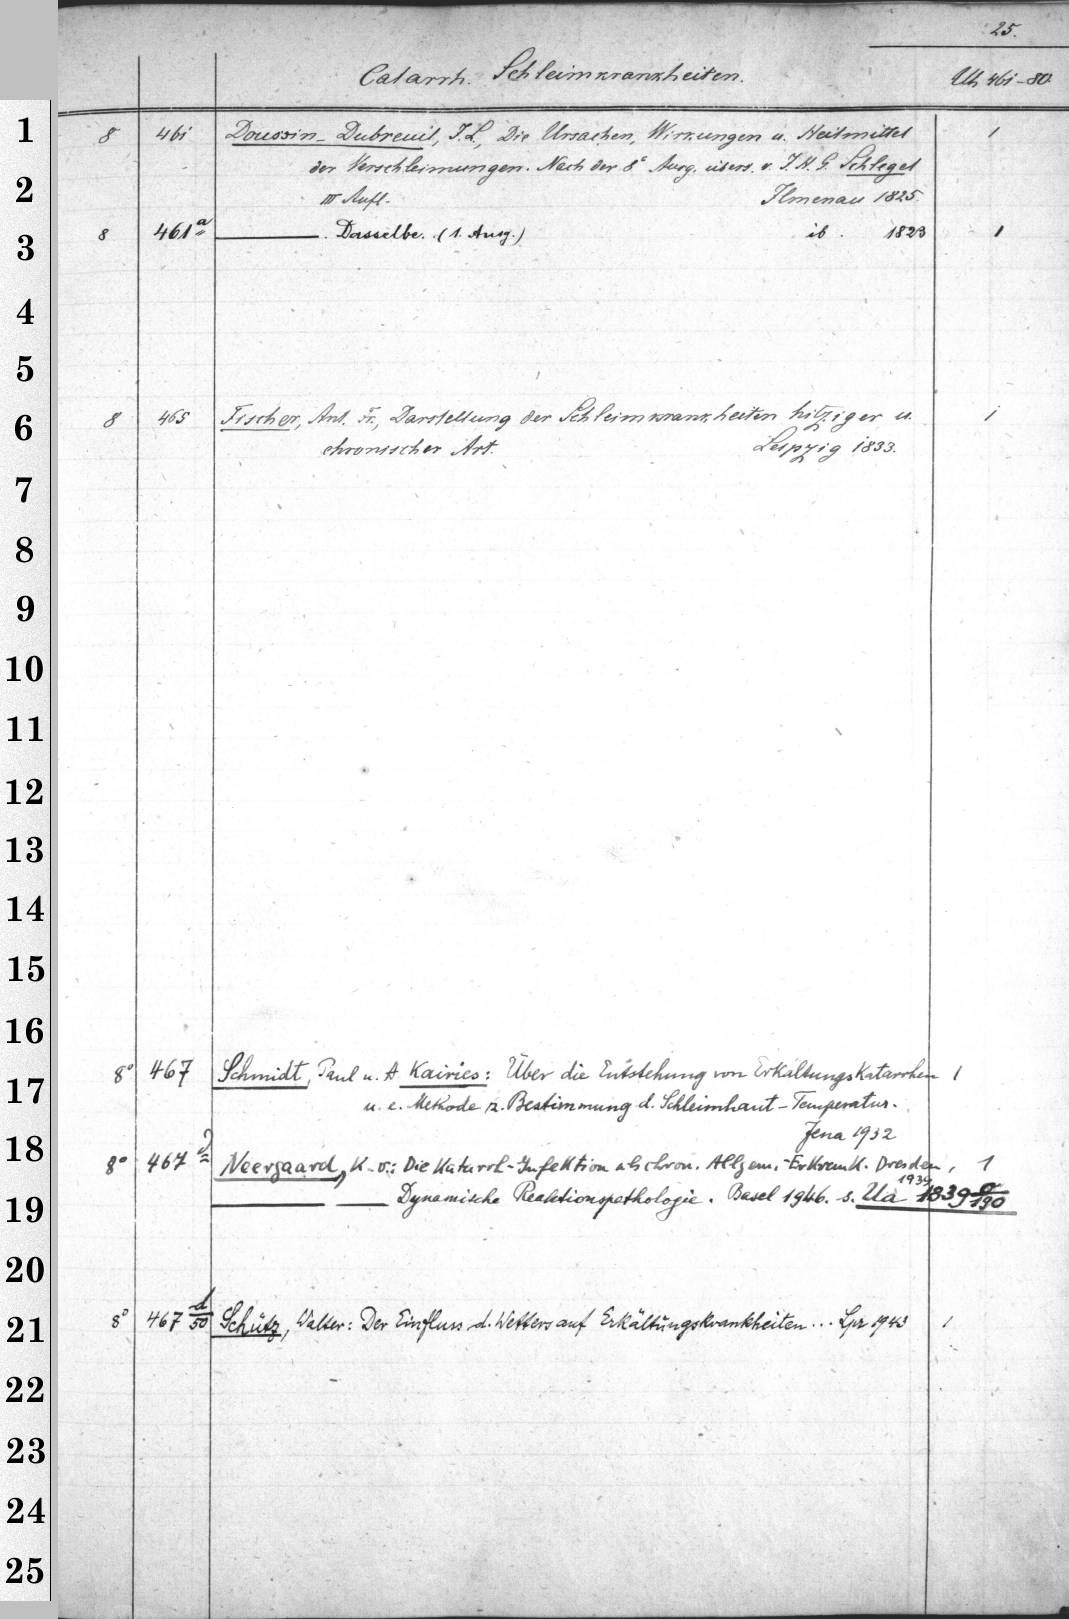 25.
Catarrh. Schleimkrankheiten. Uh 461-80.
1
8 461 Doussin-Dubreuil, J. L., Die Ursachen, Wirkungen u. Heilmittel 1
2
der Verschleimungen. Nach der 8t Ausg. übers. v. J. H. G. Schlegel
III Aufl. Ilmenau 1825.
3
8 461a Dasselbe. (1. Ausg.) ib. 1823 1
4
5
6
8 465 Fischer, Ant. Fr., Darstellung der Schleimkrankheiten hitziger u. 1
chronischer Art. Leipzig 1833.
7
8
9
10
11
12
13
14
15
16
17
8° 467 Schmidt, Paul u. A Kairies: Über die Entstehung von Erkältungskatarrhen 1
u. e. Methode z. Bestimmung d. Schleimhaut-Temperatur.
Jena 1932
18
8° 467 Neergaard, K. v.: Die Katarrh-Infektion als chron. Allgem.-Erkrank. Dresden, 1
1939
19
Dynamische Reaktionspathologie. Basel 1946. s. Ua 1839 a/190
20
21
8° 467 d/50 Schütz, Walter: Der Einfluss d. Wetters auf Erkältungskrankheiten... Lpz 1943 1
22
23
24
25